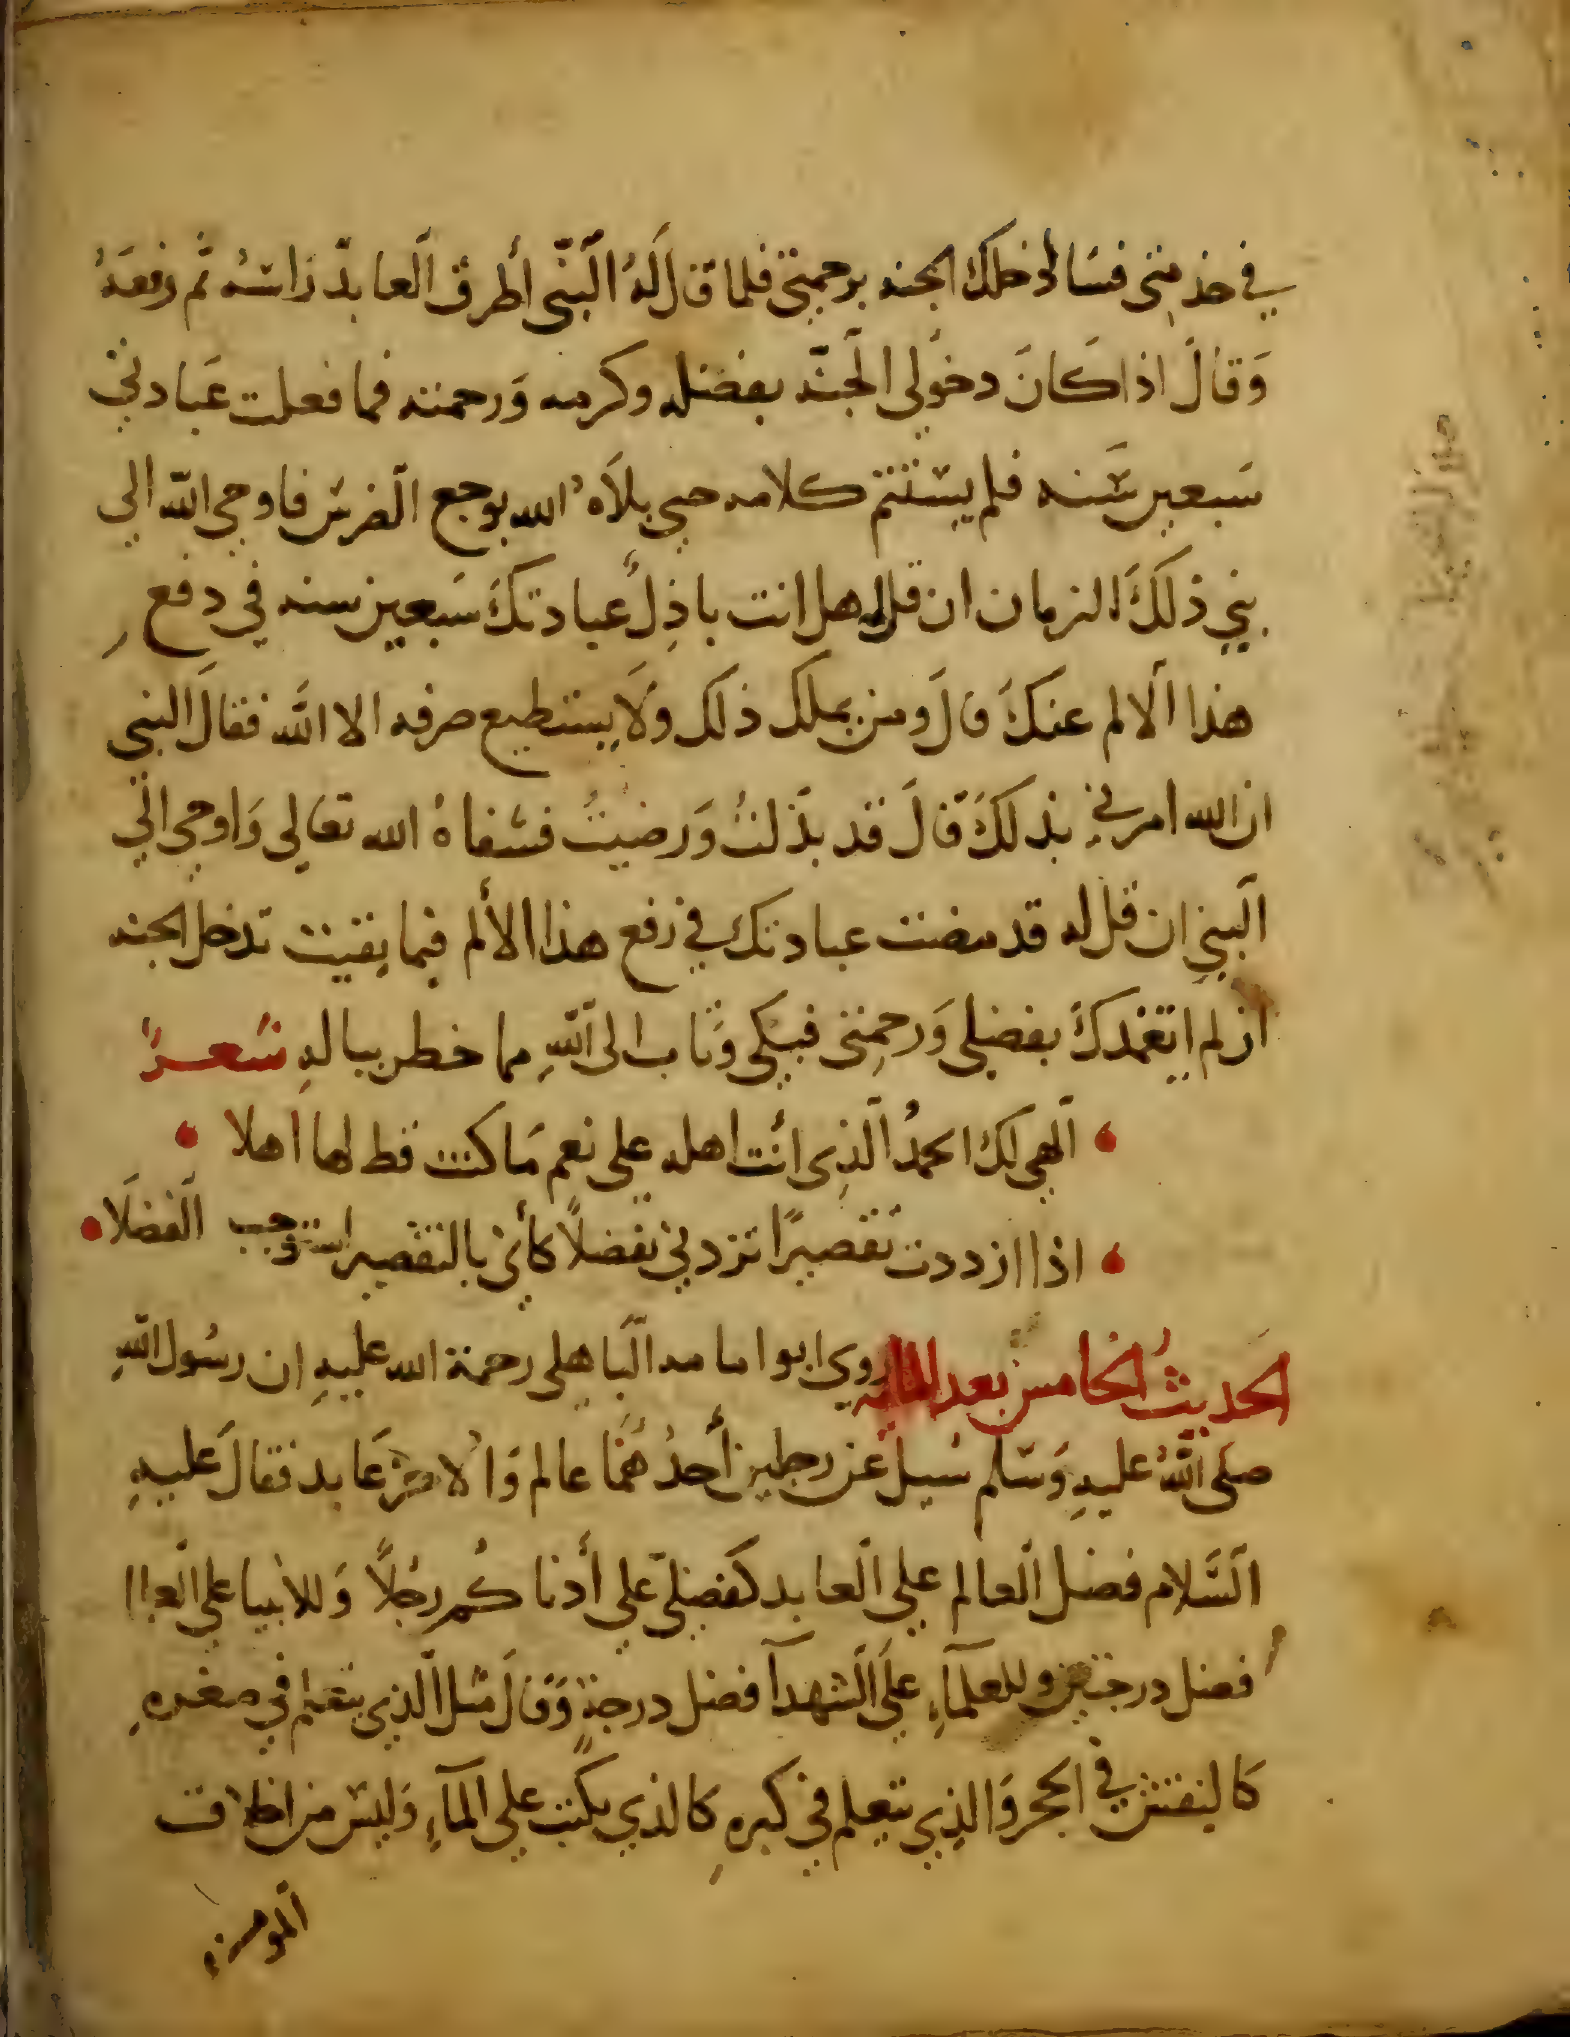 في خدمتي فسادخلك الجنه برحمتي فلما قال لَهُ النَّبي أطرق العابد راسه ثم رفعَهُ
وَقالَ اذا كانَ دخولي الجنّه بفضله وكرمه وَرحمته فما فعلت عَبادتي
سَبعين سَنه فلم يستتم كلامه حتي بلاَه الله بوجع الضرس فاوحي الله الي
نبي ذلكَ الزمان ان قل له هل انت باذِل عبادتكَ سَبعين سنه في دفع
هذا الالم عنكَ قالَ ومن يملك ذلك وَلَا يستطيع صرفه الا الله فقالَ النبي
ان الله امرني بذلكَ قَالَ قد بذلتُ وَرضيتُ فشفاهُ الله تعالي وَاوحي الي
النبي ان قل له قد مضت عبادتك في رفع هذا الألم فبما بقيت تدخل الجنه
ان لم اتغمدكَ بفضلي وَرحمتي فبكي وَتاب الى اللهِ مما خطر ببالهِ شعـــر
الهي لك الحمدُ الذِي انت اهله علي نعم مَا كنت قط لها اهلا
اذا ازددت تقصيرًا تزدني تفضلًا كأني بالتقصير استوجب الفضلَا
الحديثُ الخامس بعد المايه روي ابوا مامه البَاهلي رحمة الله عليهِ ان رسُول اللهِ
صلى اللهُ عليهِ وَسَلم سُيل عن رجلين أحدُهُمَا عالم وَالاخر عَابد فقالَ عليهِ
السَّلام فضل العالم علي العابد كفضلي علي أدناكُم رجُلًا وَللانبيا علي العلما
فضل درجتين وللعلمآءِ علَى الشهدآ فضل درجةٍ وَقالَ مثل الذِي يتعلم في صغرهِ
كالنقش في الحجر وَالذِي يتعلم في كبرهِ كالذي يكتب علي المآءِ وَليسَ من اخلاق
المومن